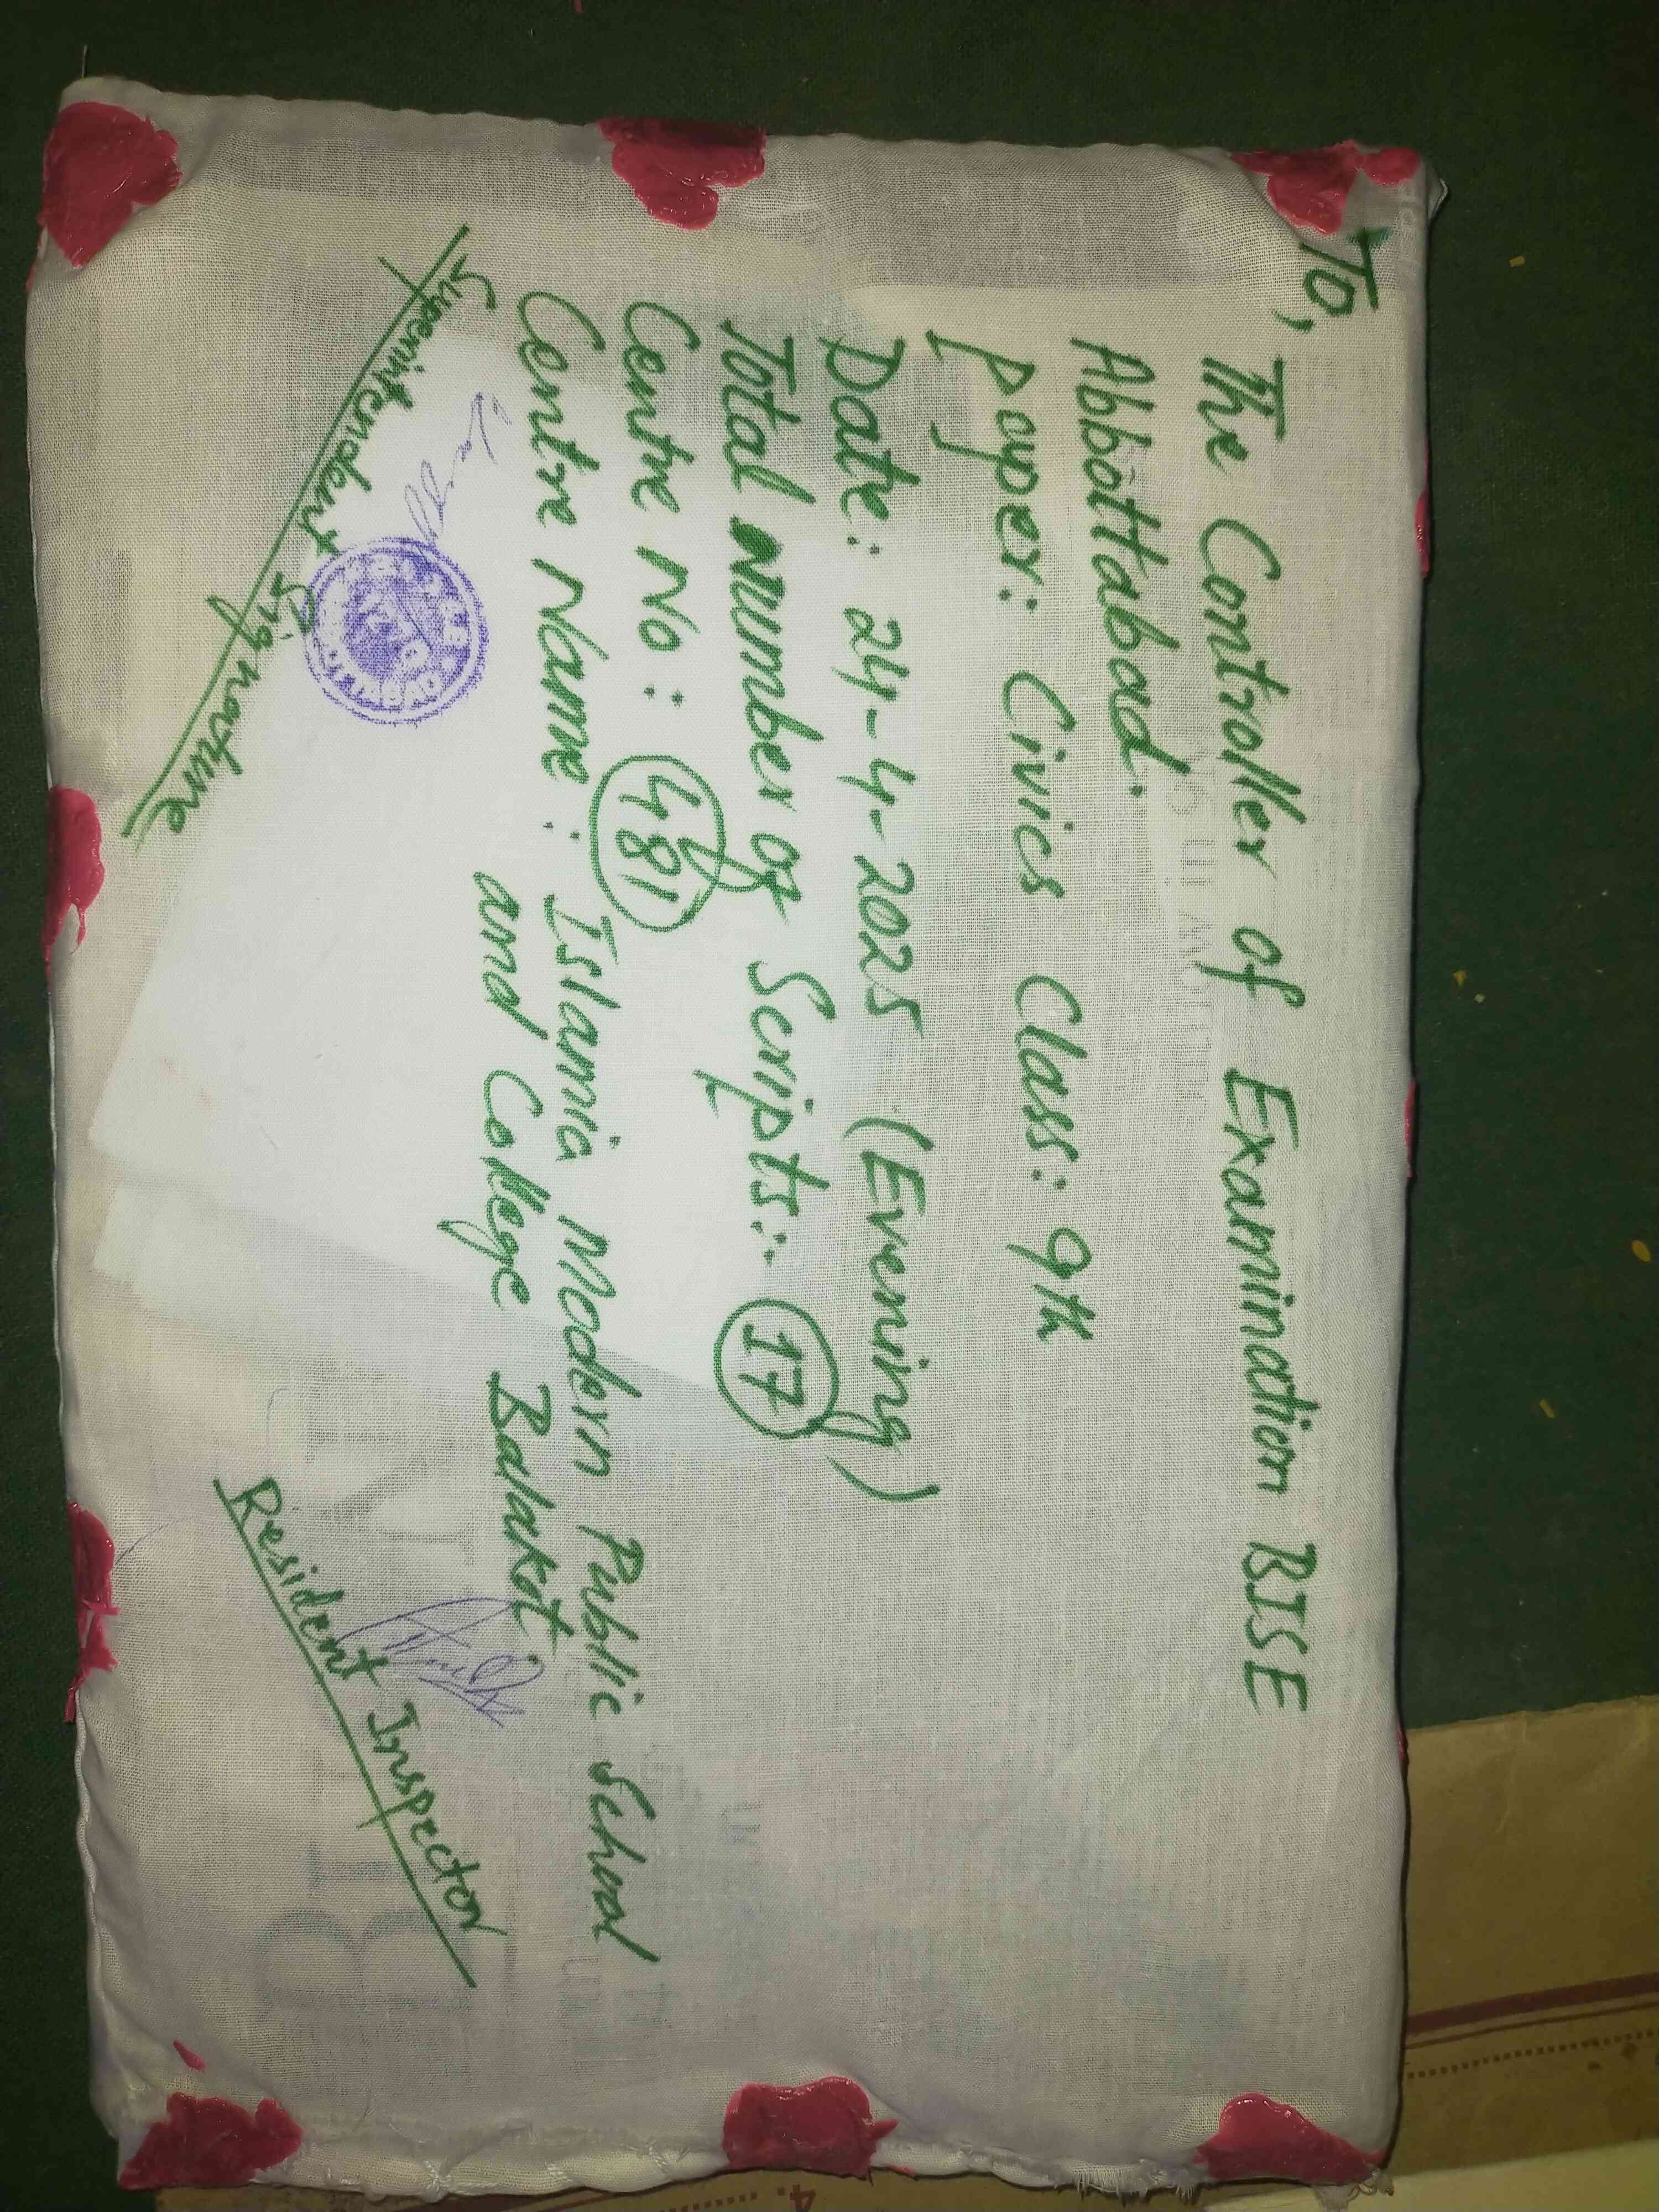 To,
The Controller of Examination BISE
Abbottabad.
paper: Civics Class: 9th
Date: 24-4-2025 (Evening)
Total Number of Scripts:- 17
Centre No: 481
Centre Name: Islamia Modern Public School
and College Balakot.
Superintendent Signature
Resident Inspector
4.